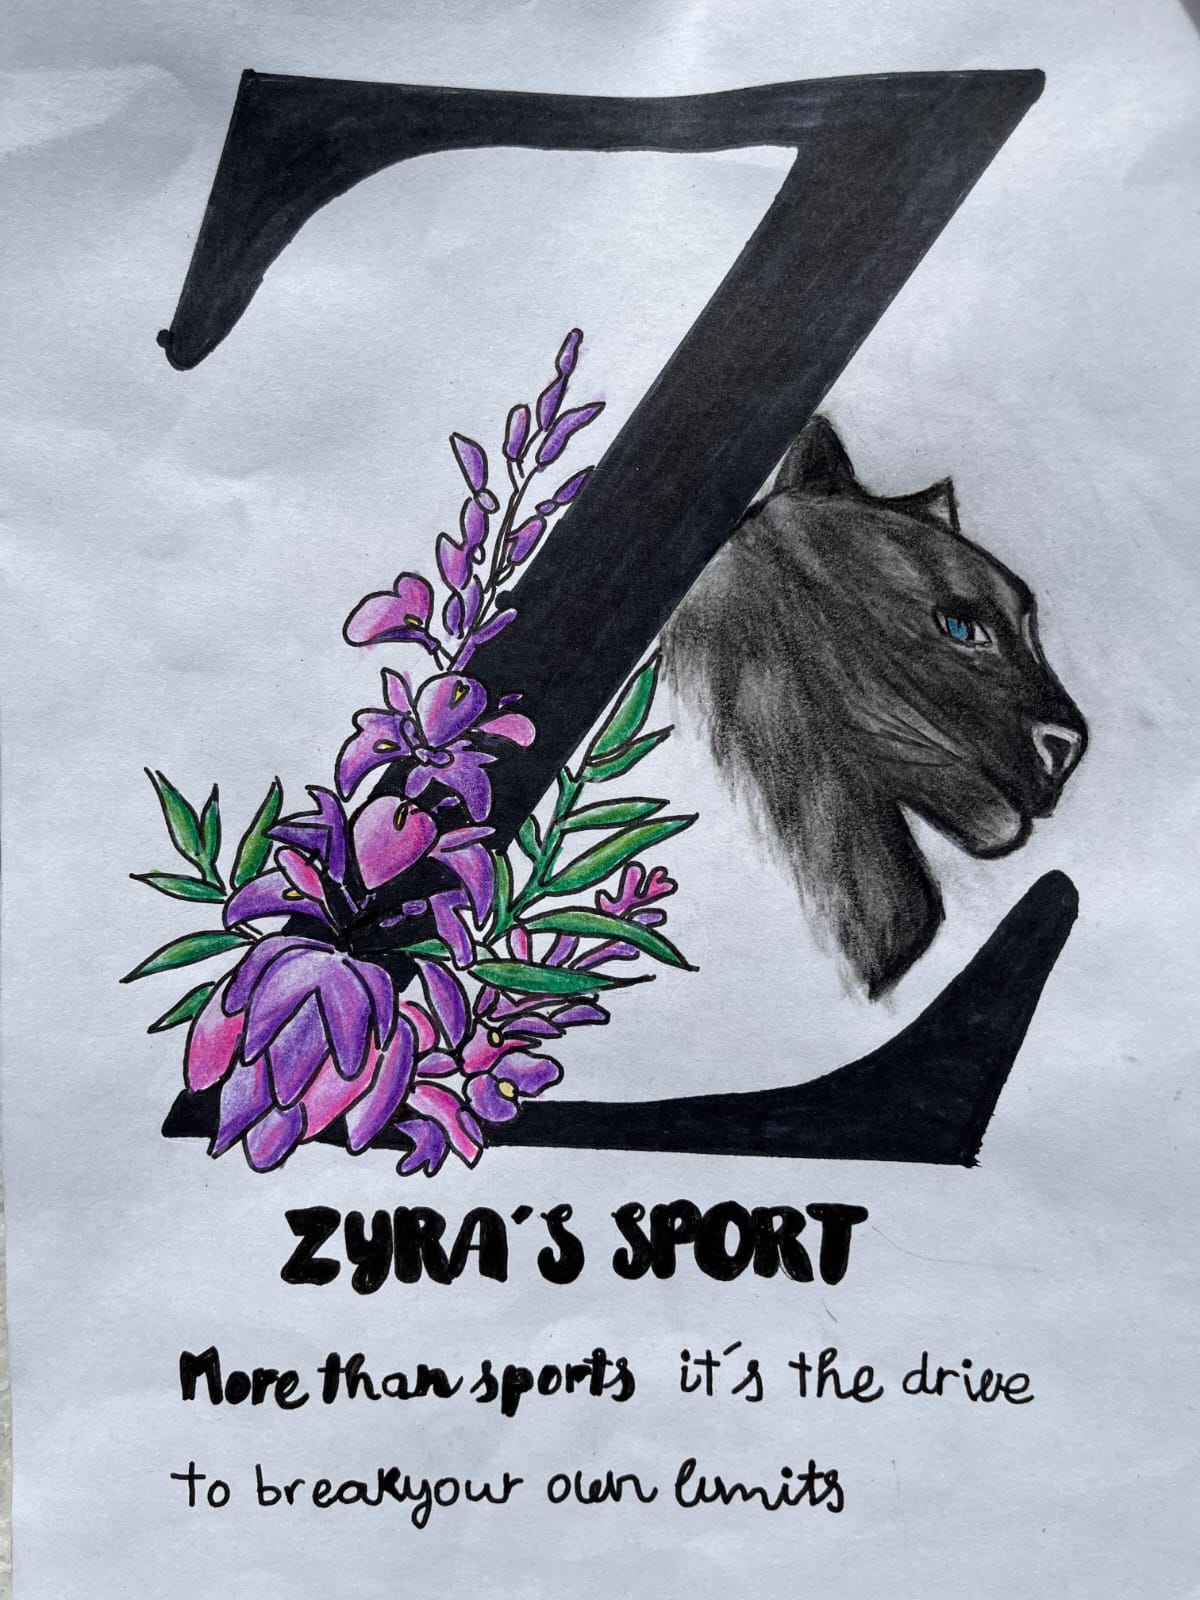 Z
ZYRA'S SPORT
More than sports it's the drive
to break your own limits